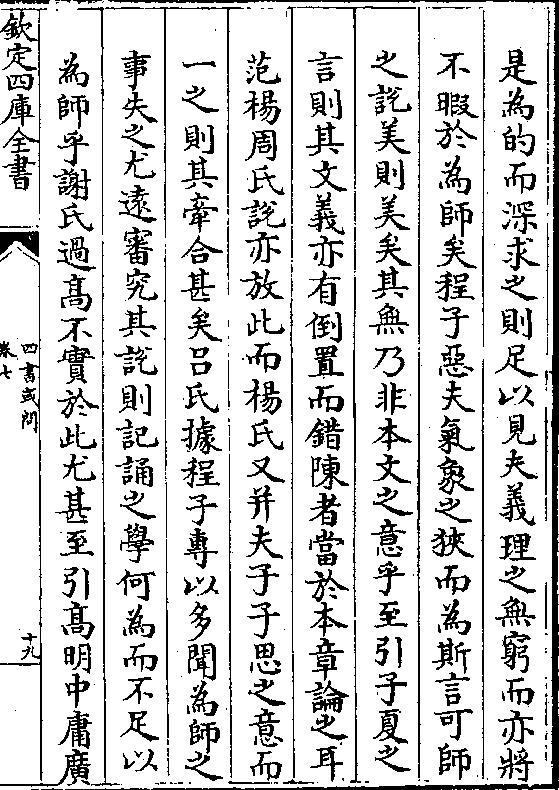 是為的而深求之則足以見夫義理之無窮而亦將
不暇於為師矣程子惡夫氣象之狹而為斯言可師
之說美則美矣其無乃非本文之意乎至引子夏之
言則其文義亦有倒置而錯陳者當於本章論之耳
范楊周氏說亦放此而楊氏又并夫子子思之意而
一之則其牽合甚矣呂氏據程子專以多聞為師之
事失之尤遠審究其說則記誦之學何為而不足以
為師乎謝氏過高不實於此尤甚至引高明中庸廣
欽定四庫全書
四書或問
卷七
十九